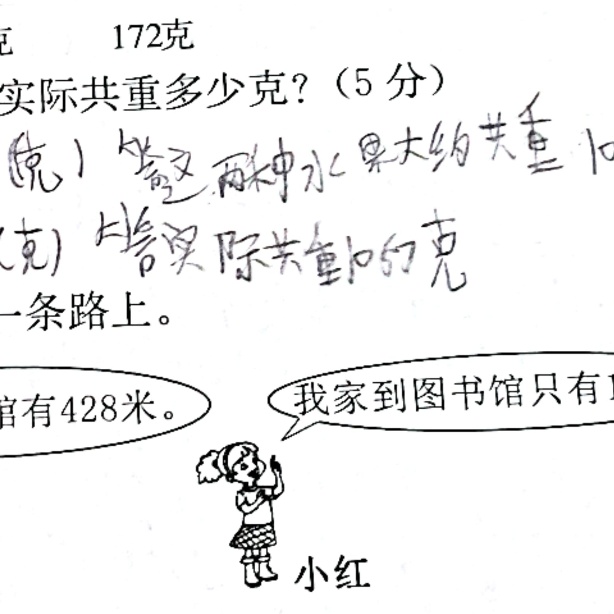 克 172克
实际共重多少克?(5分)
(克) 答这两种水果大约共重10
(克) 答实际共重1057克
一条路上。
馆有428米。
我家到图书馆只有1
小红